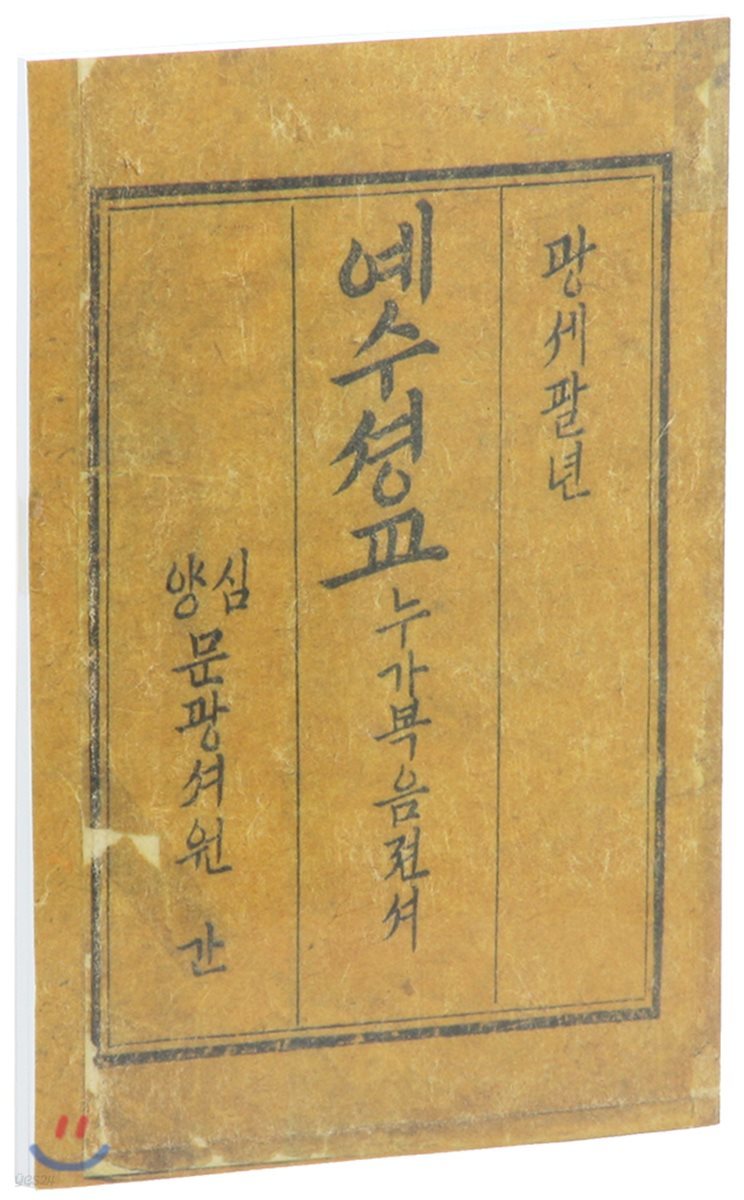 광세팔년
예수셩교누가복음젼셔
심양문광셔원 간
yes24